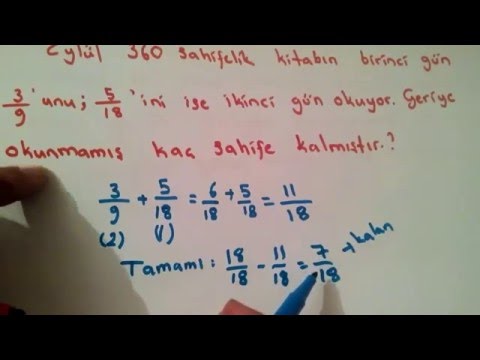 Eylül 360 sahifelik kitabın birinci gün
3/9'unu; 5/18'ini ise ikinci gün okuyor. Geriye
okunmamış kaç sahife kalmıştır.?
3/9 + 5/18 = 6/18 + 5/18 = 11/18
(2) (1)
Tamamı: 18/18 - 11/18 = 7/18 → kalan